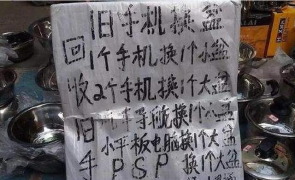 旧手机换盆
回1个手机换1个小盆
收2个手机换1个大盆
旧1个导航换1个小盆
小平板电脑换1个大盆
手PSP换1个大盆